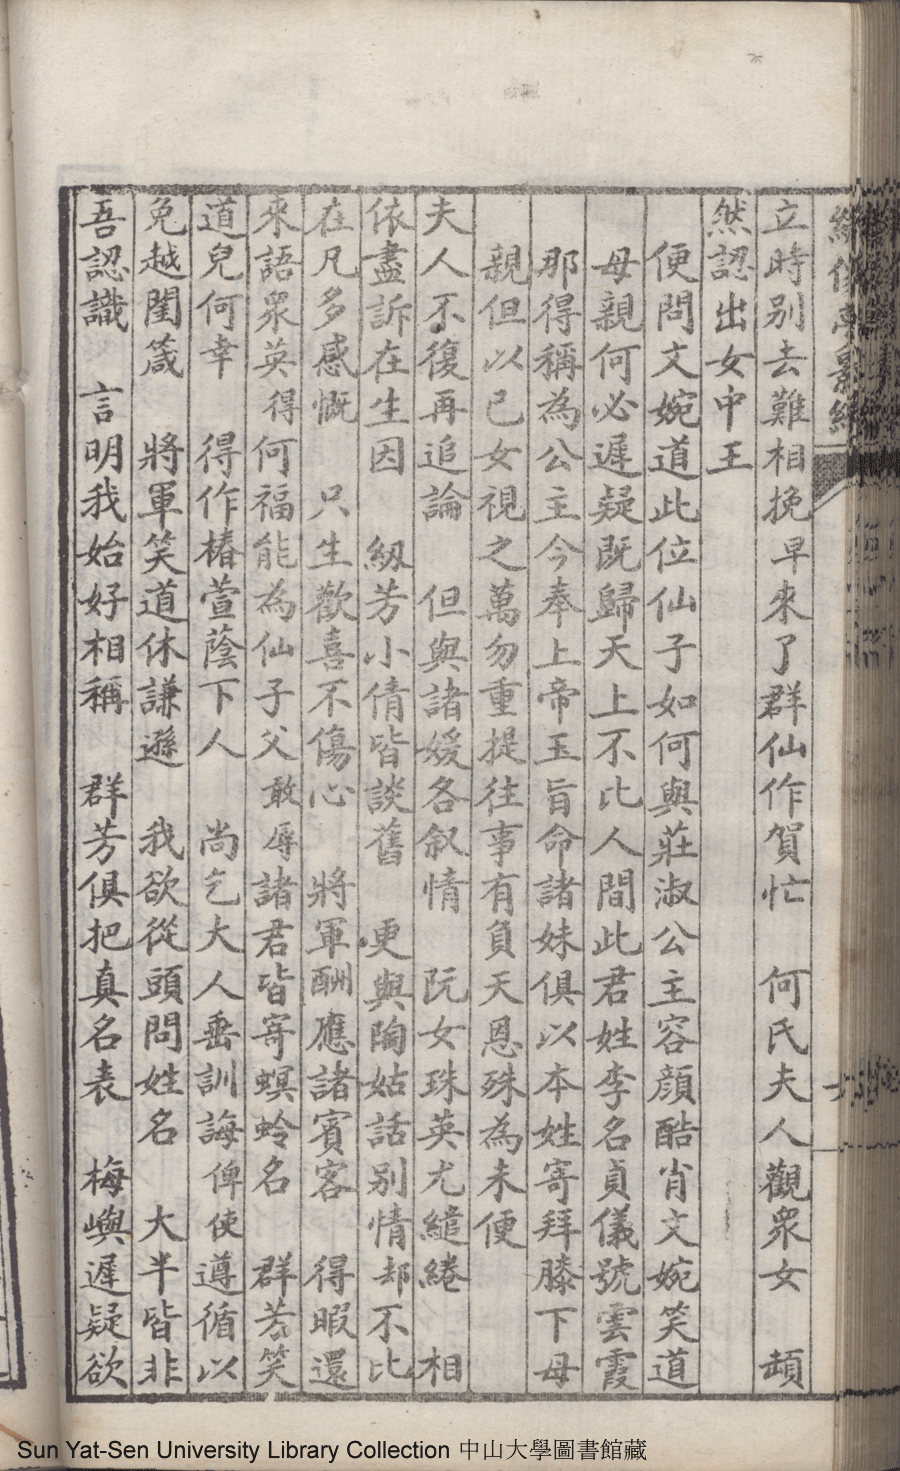 立時别去難相挽早來了群仙作賀忙　何氏夫人觀衆女　頡
然認出女中王
便問文婉道此位仙子如何與莊淑公主容顔酷肖文婉笑道
母親何必遲疑既歸天上不比人間此君姓李名貞儀號雲霞
那得稱為公主今奉上帝玉旨命諸妹俱以本姓寄拜膝下母
親但以己女視之萬勿重提往事有負天恩殊為未便
夫人不復再追論　但與諸媛各叙情　阮女珠英尤繾綣　相
依盡訴在生因　紉芳小倩皆談舊　更與陶姑話别情却不比
在凡多感慨　只生歡喜不傷心　將軍酬應諸賓客　得暇還
來語衆英得何福能為仙子父敢辱諸君皆寄螟蛉名　群芳笑
道兒何幸　得作椿萱蔭下人　尚乞大人垂訓誨俾使遵循以
免越閨箴　將軍笑道休謙遜　我欲從頭問姓名　大半皆非
吾認識　言明我始好相稱　群芳俱把真名表　梅嶼遲疑欲
Sun Yat-Sen University Library Collection 中山大學圖書館藏